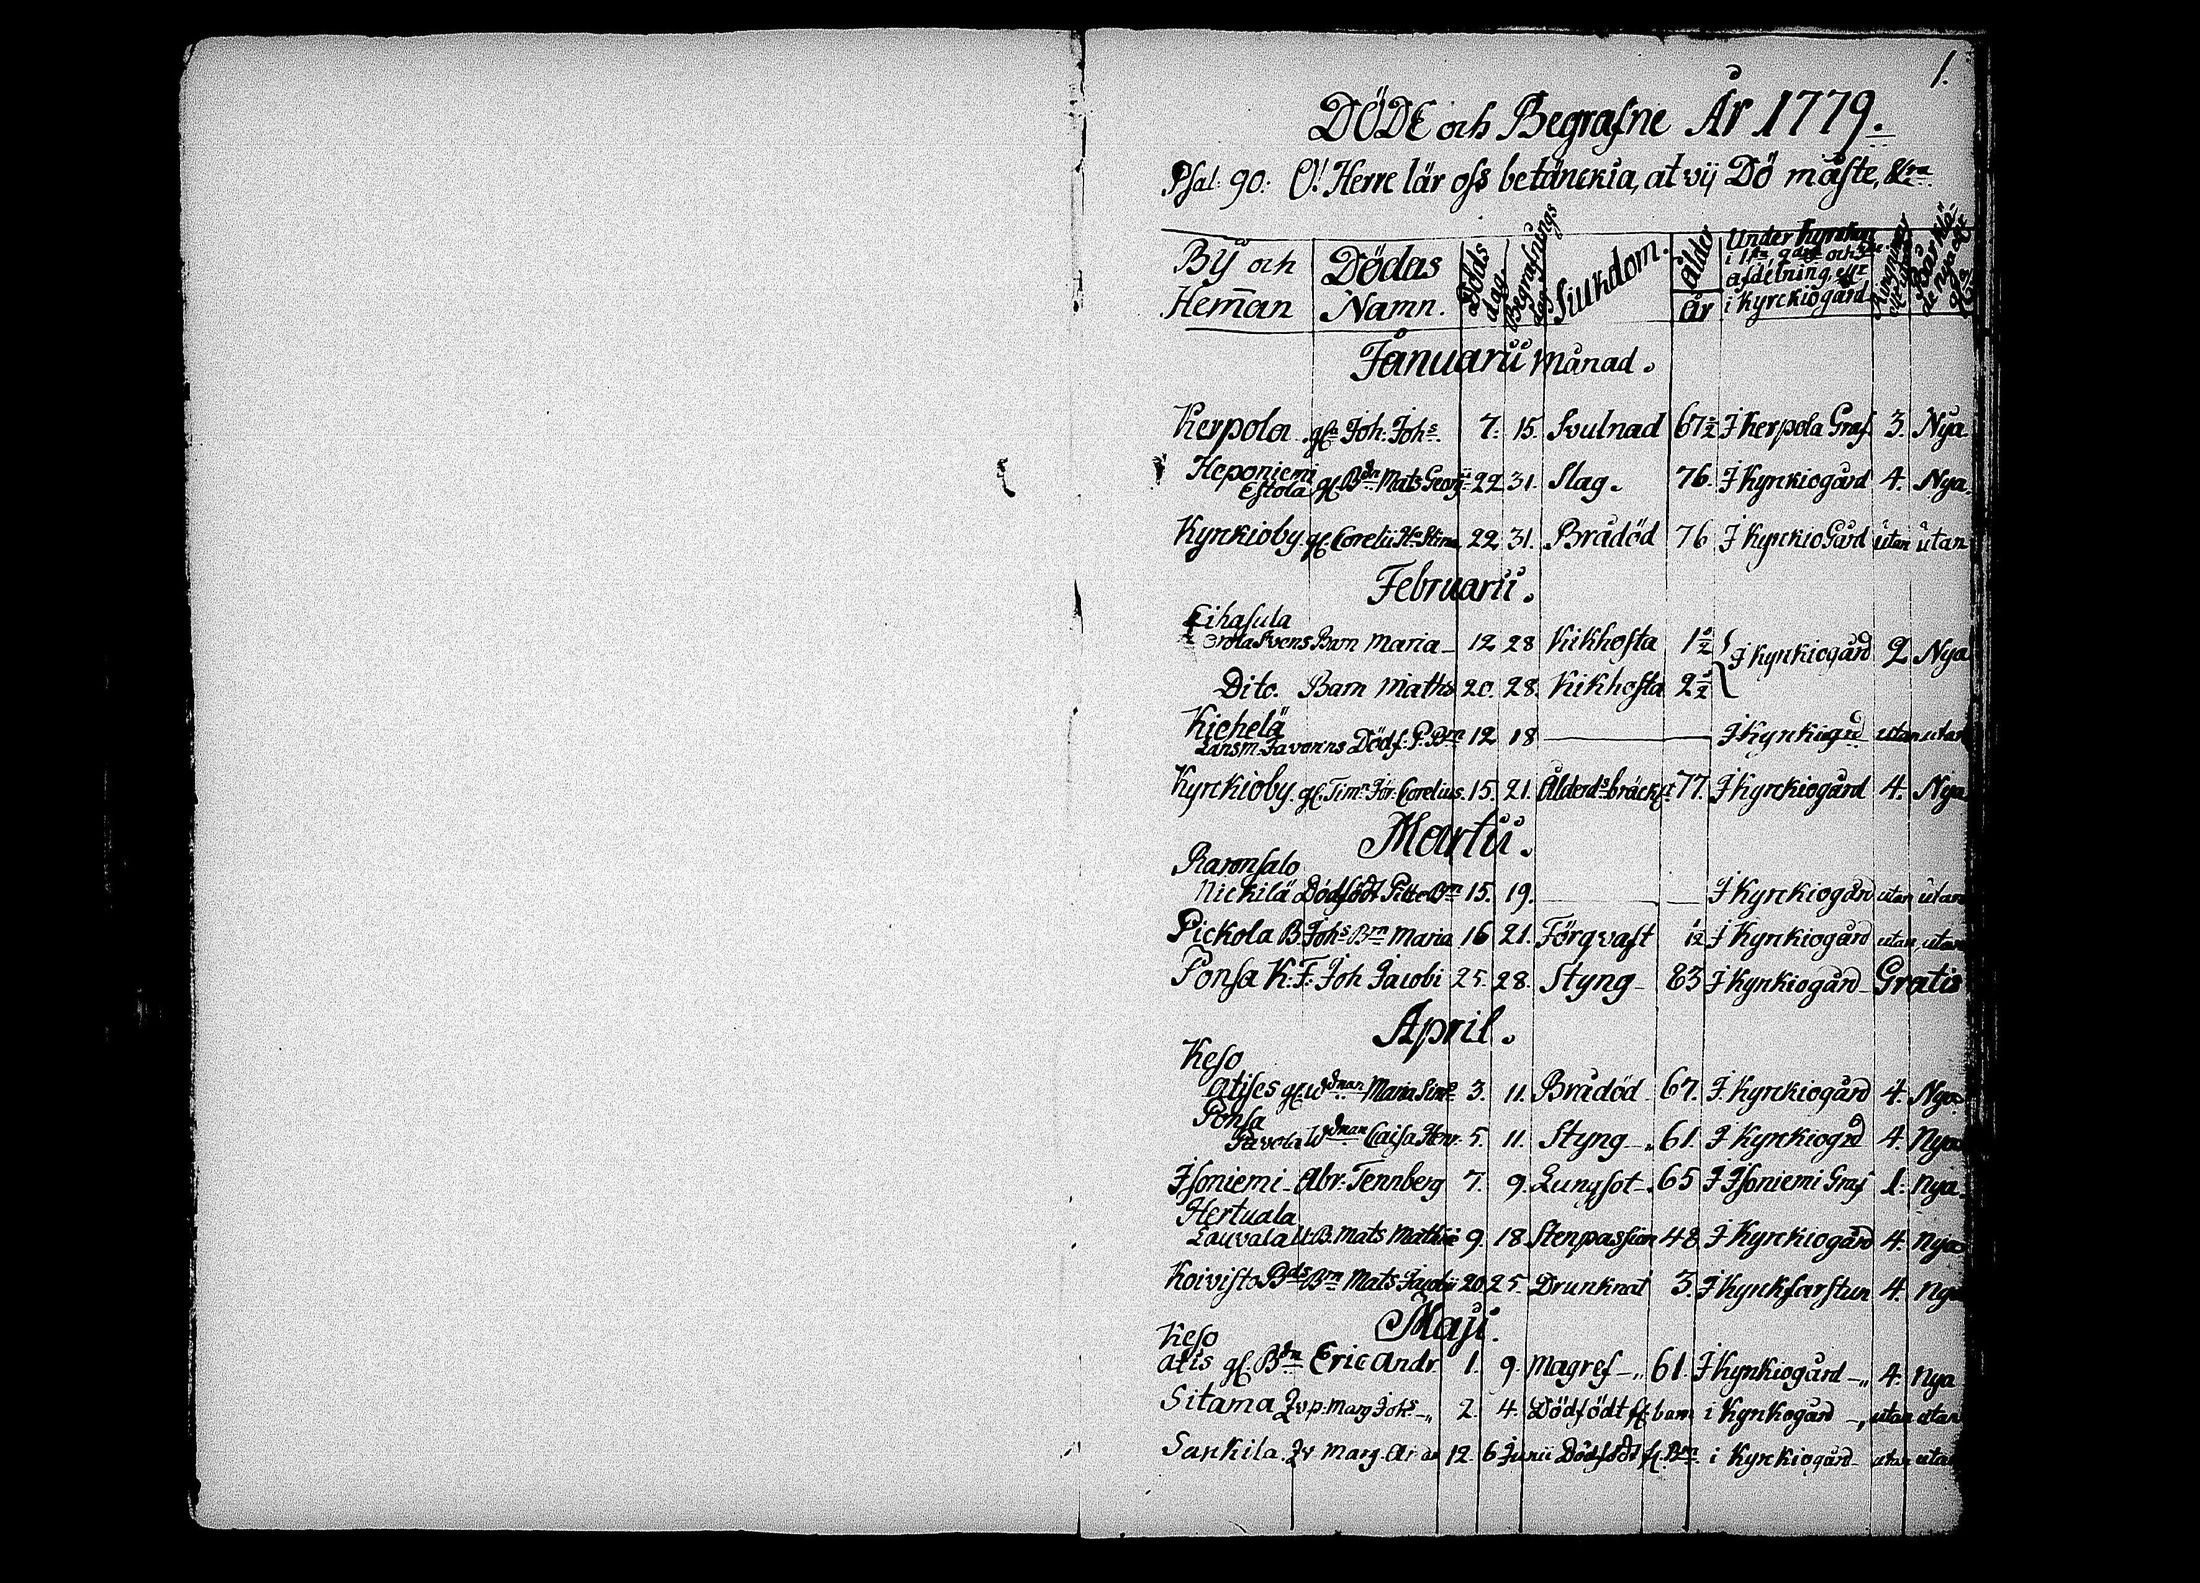 1.
DÖDE och Begrafne År 1779.
Psal: 90: O! Herre lär oss betänckia, at vij Dö måste, &ra
Bÿ och Heman | Dödas Namn. | Döds dag. | Begrafnings dag | Siukdom. | ålder År | Under kyrckan i 1sta, 2dra och afdelning, ell: i kyrckiogård
Januarii Månad.
Kerpola gla Joh: Johs. 7. 15. Svulnad 67½ J Kerpola Graf 3. Nya
Heponiemi
Estola gl. Bdn Mats Georgii 22 31. Slag. 76. J Kyrckiogård 4. Nya.
Kyrckioby. gl: Corelii Stina 22 31. Brådöd 76 J KyrckioGård utan utan
Februarii.
Eihasula
Svens Barn Maria 12 28 Kikhosta 1½ J kyrckiogård 2 Nya
Dito. Barn Maths 20. 28. Kikhosta 2½
Kichelä
Länsm: Dödf: P: Brn 12 18 J Kyrckiogd utan utan
Kyrckioby. gl: Timn Jör: Corelius. 15. 21. Ålderds bräckl: 77. J Kyrckiogård 4. Nya
Martii.
Ravonsalo
Nickilä Dödfödt Brn 15. 19. J Kyrckiogård utan utan
Pickola B. Johs Brn Maria 16 21. Förqvaft ½ J Kyrckiogård utan, utan
Ponsa K: F: Joh Jacobi 25. 28. Styng 83 J Kyrckiogård Gratis
April.
Keso
Atises gl: Wdman Maria Sim 3. 11. Brådöd 67. J Kyrckiogård 4. Nya
Ponsa
Pavola Wdman Caisa Henr. 5. 11. Styng 61. J Kyrckiogrd 4. Nya
Jsoniemi Abr: Tennberg 7. 9. Lungsot 65 J Jsoniemi Graf 1. Nya.
Hertuala
Lauvala B. Mats Mathiæ 9. 18. Stenpassion 48 J Kyrckiogård 4. Nya
Koivisto Bds Brn Mats Jacobi 20 25. Drunknat 3. J Kyrckfarstun 4. Nya
Maji.
Keso
Atis gl. Bdn Eric Andr 1. 9. Magref 61. J Kyrckiogård 4. Nya
Sitama Qvp. Marg Johs 2. 4. Dödfödt fl: barn i Kyrckogård utan utan
Sarkila. Qv Marg. 12. 6 Junii Dödfödt fl. Brn. i Kyrckiogård utan utan